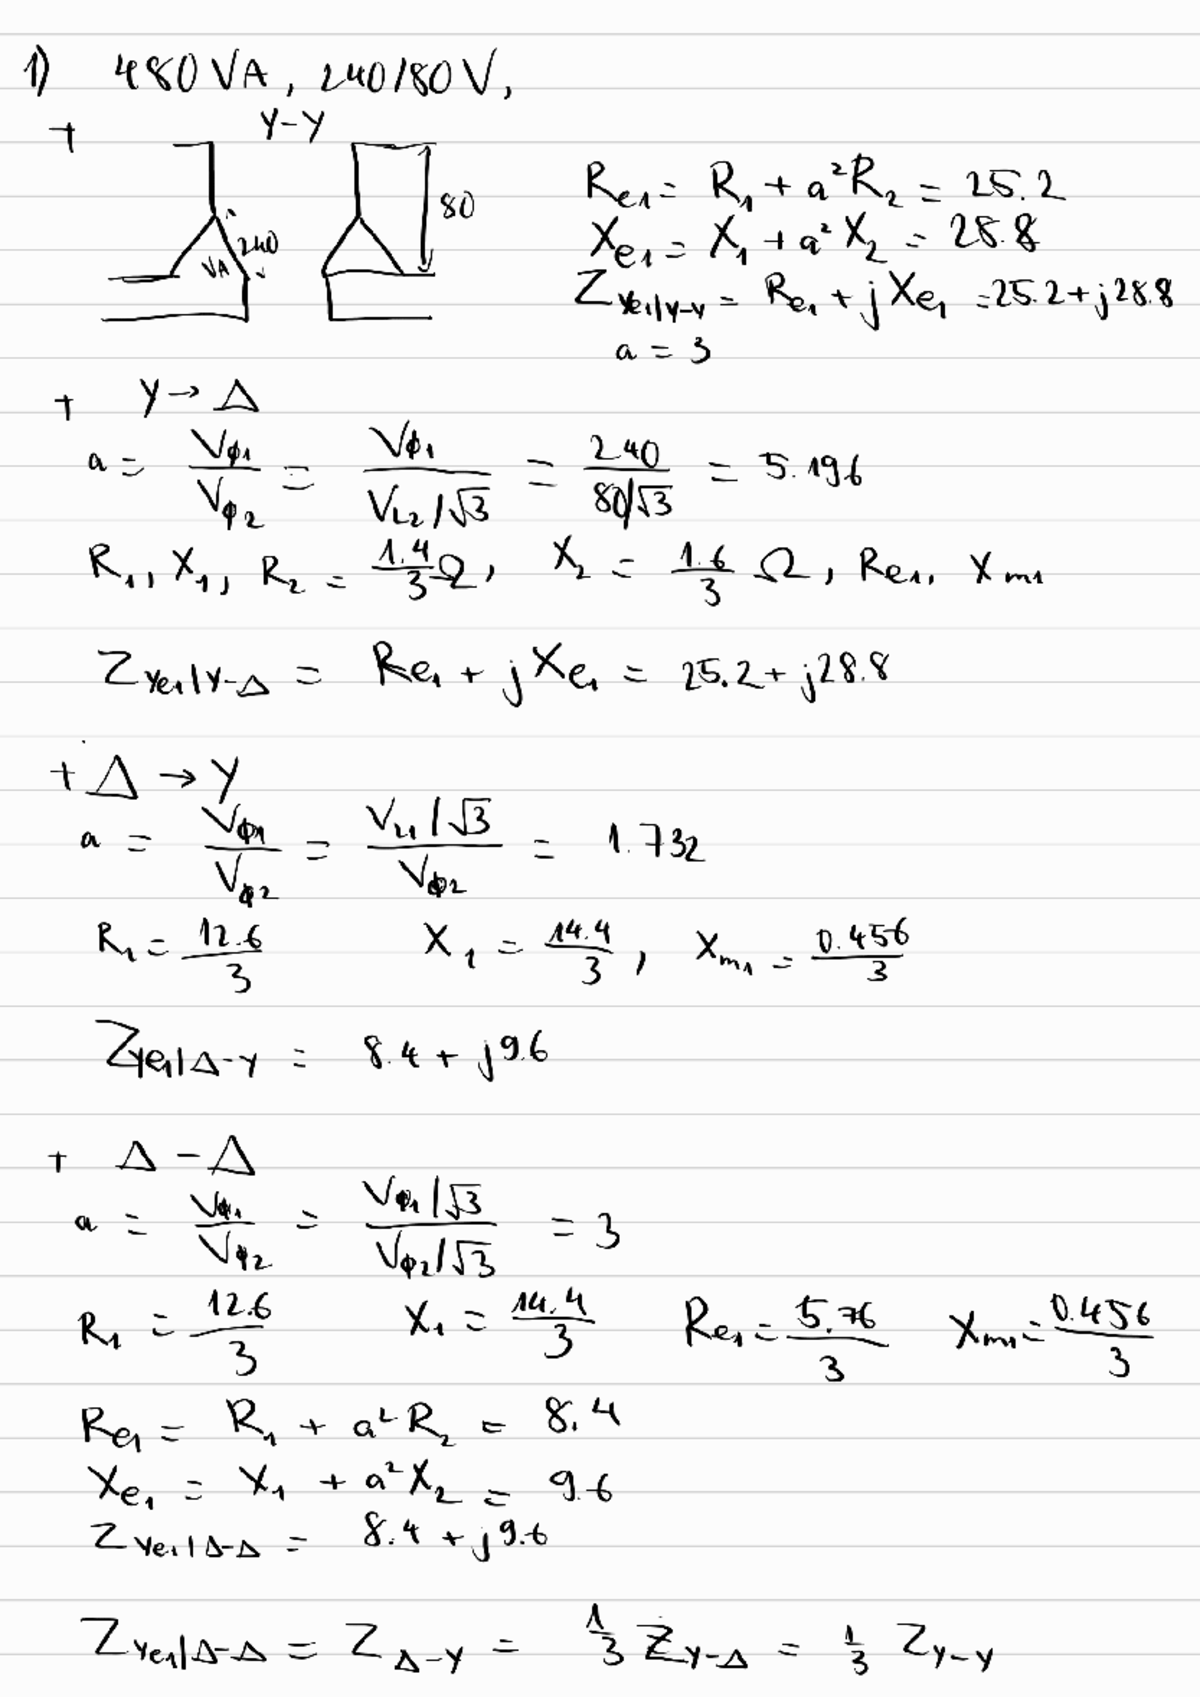 1) 480 VA, 240/80 V,
+ Y-Y
240
VA
80
Re1 = R1 + a²R2 = 25.2
Xe1 = X1 + a² X2 = 28.8
ZYe1|Y-Y = Re1 + jXe1 = 25.2 + j28.8
a = 3
+ Y → Δ
a = Vφ1/Vφ2 = Vφ1/(VL2/√3) = 240/(80/√3) = 5.196
R1, X1, R2 = 1.4/3 Ω, X2 = 1.6/3 Ω, Re1, Xm1
ZYe1|Y-Δ = Re1 + jXe1 = 25.2 + j28.8
+ Δ → Y
a = Vφ1/Vφ2 = (VL1/√3)/Vφ2 = 1.732
R1 = 12.6/3 X1 = 14.4/3, Xm1 = 0.456/3
ZYe1|Δ-Y = 8.4 + j9.6
+ Δ - Δ
a = Vφ1/Vφ2 = (Vφ1/√3)/(Vφ2/√3) = 3
R1 = 12.6/3 X1 = 14.4/3 Re1 = 5.76/3 Xm1 = 0.456/3
Re1 = R1 + a²R2 = 8.4
Xe1 = X1 + a²X2 = 9.6
ZYe1|Δ-Δ = 8.4 + j9.6
ZYe1|Δ-Δ = ZΔ-Y = 1/3 ZY-Δ = 1/3 ZY-Y